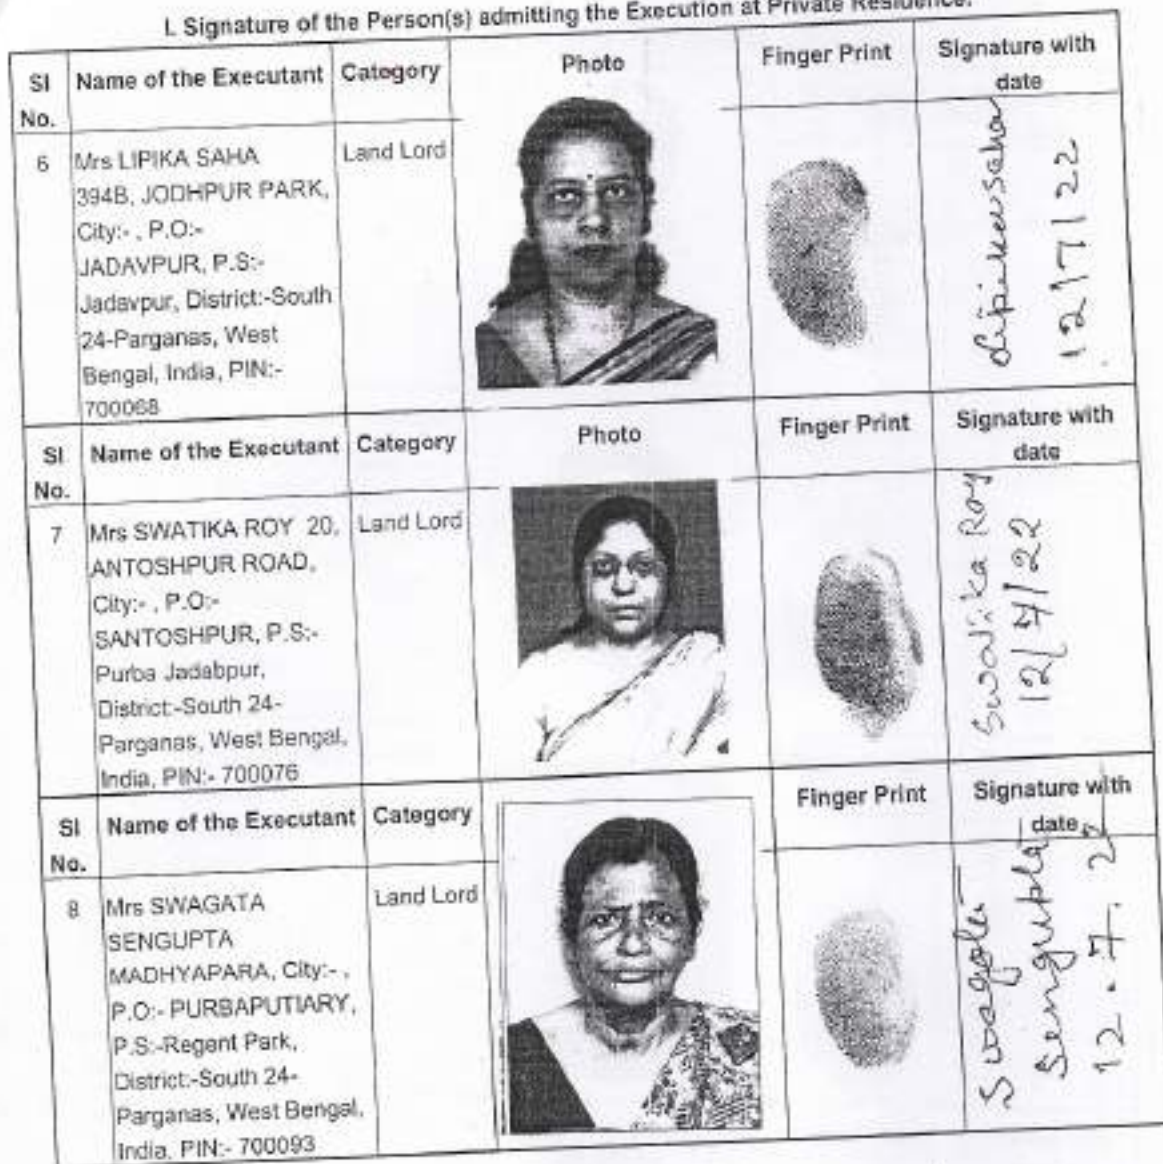 I. Signature of the Person(s) admitting the Execution at Private Residence.
Sl No. Name of the Executant Category Photo Finger Print Signature with date
6 Mrs LIPIKA SAHA Land Lord
394B, JODHPUR PARK,
City:- , P.O:-
JADAVPUR, P.S:-
Jadavpur, District:-South
24-Parganas, West
Bengal, India, PIN:-
700068
Lipika Saha
12/7/22
Sl No. Name of the Executant Category Photo Finger Print Signature with date
7 Mrs SWATIKA ROY 20, Land Lord
ANTOSHPUR ROAD,
City:- , P.O:-
SANTOSHPUR, P.S:-
Purba Jadabpur,
District:-South 24-
Parganas, West Bengal,
India, PIN:- 700076
Swatika Roy
12/7/22
Sl No. Name of the Executant Category Finger Print Signature with date
8 Mrs SWAGATA Land Lord
SENGUPTA
MADHYAPARA, City:- ,
P.O:- PURBAPUTIARY,
P.S:-Regent Park,
District:-South 24-
Parganas, West Bengal,
India, PIN:- 700093
Swagata
Sengupta
12.7.22